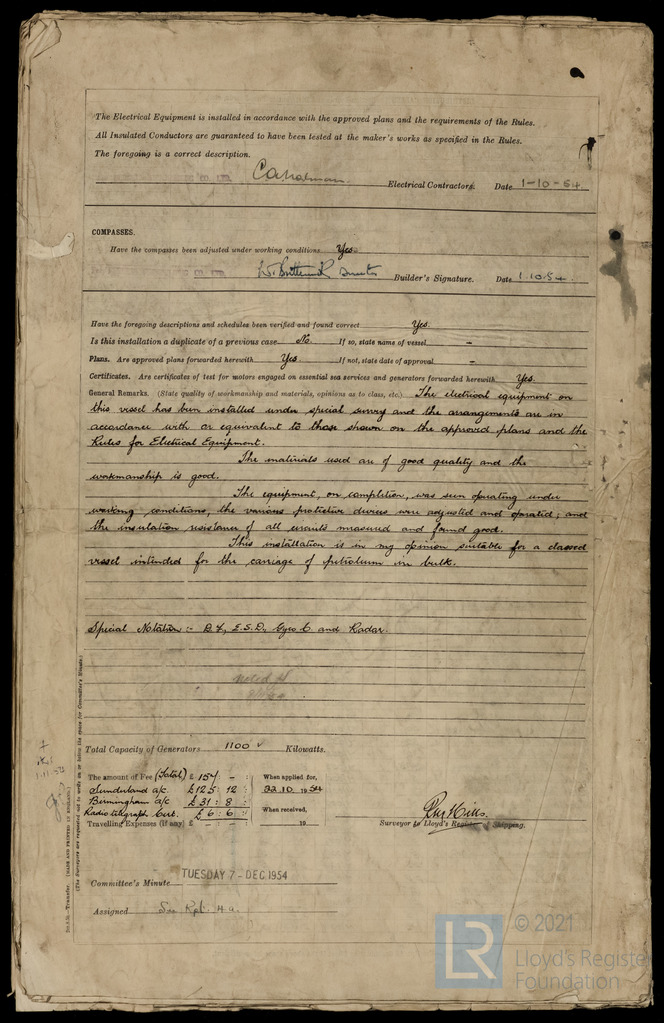 The Electrical Equipment is installed in accordance with the approved plans and the requirements of the Rules.
All Insulated Conductors are guaranteed to have been tested at the maker's works as specified in the Rules.
The foregoing is a correct description.
Electrical Contractors. Date 1-10-54
COMPASSES.
Have the compasses been adjusted under working conditions Yes
Builder's Signature. Date 1.10.54
Have the foregoing descriptions and schedules been verified and found correct Yes.
Is this installation a duplicate of a previous case No. If so, state name of vessel –
Plans. Are approved plans forwarded herewith Yes If not, state date of approval –
Certificates. Are certificates of test for motors engaged on essential sea services and generators forwarded herewith Yes.
General Remarks. (State quality of workmanship and materials, opinions as to class, etc.) The electrical equipment on
this vessel has been installed under special survey and the arrangements are in
accordance with or equivalent to those shown on the approved plans and the
Rules for Electrical Equipment.
The materials used are of good quality and the
workmanship is good.
The equipment, on completion, was seen operating under
working conditions, the various protective devices were adjusted and operated; and
the insulation resistance of all circuits measured and found good.
This installation is in my opinion suitable for a classed
vessel intended for the carriage of petroleum in bulk.
Special Notation:- D.F., E.S.D., Gyro C. and Radar.
Noted
Total Capacity of Generators 1100 Kilowatts.
The amount of Fee (Total) £ 157 : - : When applied for,
Sunderland a/c. £125 : 12 : 22.10.1954
Birmingham a/c £31 : 8 : When received,
Radio telegraph Cert. £6 : 6 :
Travelling Expenses (if any) £ - : - : 19
Surveyor to Lloyd's Register of Shipping.
Committee's Minute TUESDAY 7 - DEC 1954
Assigned See Rpt. 4a.
(MADE AND PRINTED IN ENGLAND.)
(The Surveyors are requested not to write on or below the space for Committee's Minute.)
LR
© 2021
Lloyd's Register
Foundation